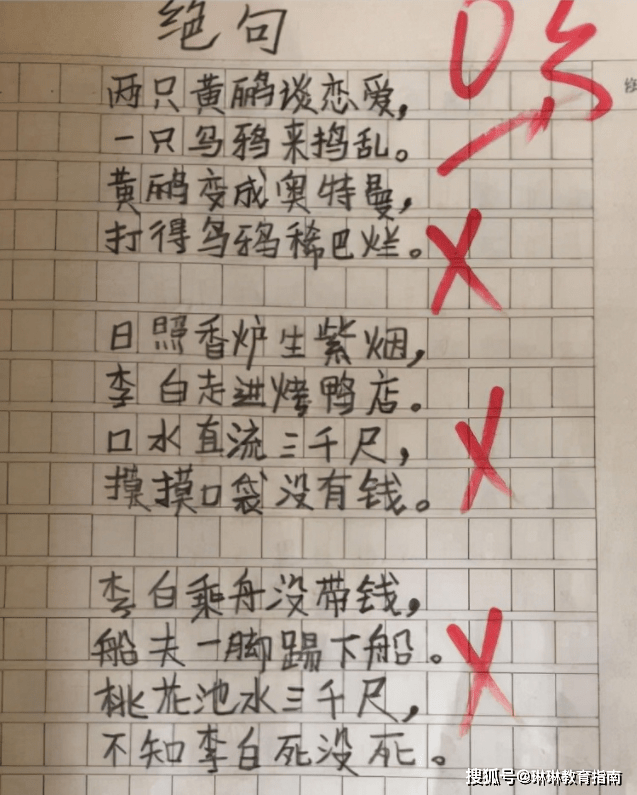 绝句
0分
两只黄鹂谈恋爱，
一只乌鸦来捣乱。
黄鹂变成奥特曼，
打得乌鸦稀巴烂。
日照香炉生紫烟，
李白走进烤鸭店。
口水直流三千尺，
摸摸口袋没有钱。
李白乘舟没带钱，
船夫一脚踢下船。
桃花池水三千尺，
不知李白死没死。
搜狐号@琳琳教育指南